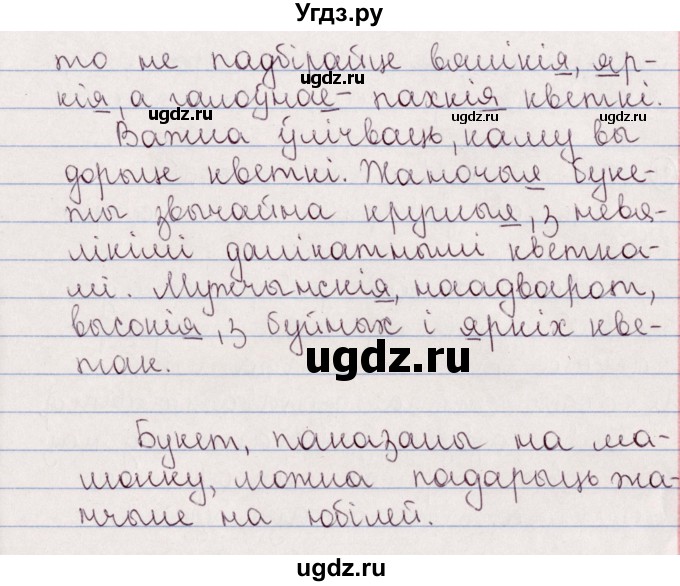 Угдз.ру
то не падбірайце вялікія, яр-
кія, а галоўнае - пахкія кветкі.
Важна ўлічваць, каму вы
дорыце кветкі. Жаночыя буке-
ты звычайна круглыя, з невя-
лікімі далікатнымі кветка-
мі. Мужчынскія, наадварот,
высокія, з буйных і яркіх кве-
так.
Букет, паказаны на ма-
люнку, можна падарыць жа-
нчыне на юбілей.
ugdz.ru
ugdz.ru
ugdz.ru
ugdz.ru
ugdz.ru
ugdz.ru